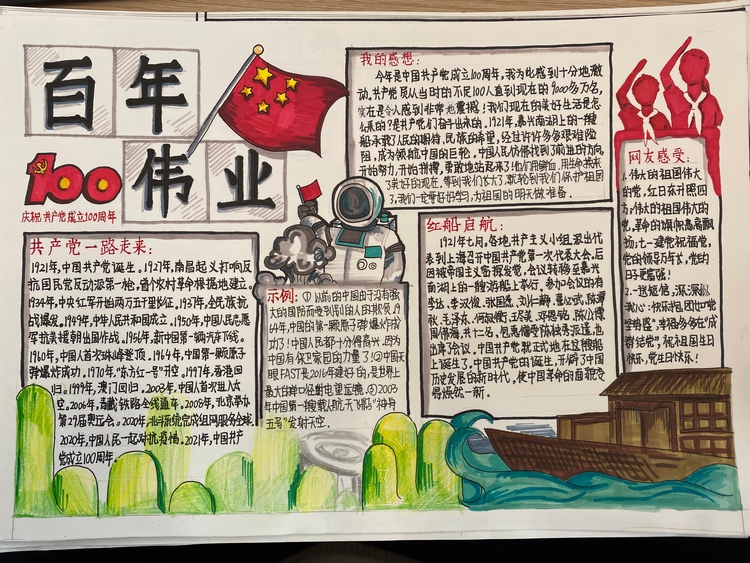 百年
伟业
100
庆祝共产党成立100周年
共产党一路走来:
1921年,中国共产党诞生。1927年,南昌起义打响反
抗国民党反动派第一枪,首个农村革命根据地建立。
1934年,中央红军开始两万五千里长征。1937年,全民族抗
战爆发。1949年,中华人民共和国成立。1950年,中国人民志愿
军抗美援朝出国作战。1956年,新中国第一辆汽车下线。
1960年,中国人首次珠峰登顶。1964年,中国第一颗原子
弹爆炸成功。1970年,"东方红一号"升空。1997年,香港回
归。1999年,澳门回归。2003年,中国人首次进入太
空。2006年,青藏铁路全线通车。2008年,北京举办
第29届奥运会。2020年,北斗系统完成组网服务全球。
2020年,中国人民一起对抗疫情。2021年,中国共产
党成立100周年。
我的感想:
今年是中国共产党成立100周年,我为此感到十分地激
动。共产党员从当时的不足100人直到现在的9000多万名,
实在是令人感到非常地震撼!我们现在的美好生活是怎
么来的?是共产党们奋斗出来的。1921年,嘉兴南湖上的一艘
船承载了人民的期待、民族的希望,经过许许多多艰难险
阻,成为领航中国的巨轮。中国人民仿佛找到了前进的方向,
开始努力,开始拼搏,勇敢地站起来了!他们用鲜血,用生命带来
了美好的现在。等到我们长大了,就轮到我们保护祖国
了,我们一定要好好学习,为祖国的明天做准备。
示例:①以前的中国由于没有强
大的国防而受到别人的人的欺负,19
64年,中国的第一颗原子弹爆炸成
功了!中国人民都十分得高兴,因为
中国有保卫家园的力量了!②中国天
眼FAST于2016年建好的,是世界上
最大的单口径射电望远镜。③2003
年中国第一搜载人航天飞船"神舟
五号"发射升空。
红船启航:
1921年七月,各地共产主义小组派出代
表到上海召开中国共产党第一次代表大会,后
因被帝国主义密探发觉,会议转移至嘉兴
南湖上的一艘游船上举行。参加会议的有
李达、李汉俊、张国焘、刘仁静、董必武、陈潭
秋、毛泽东、何叔衡、王尽美、邓恩铭、陈公博、
周佛海,共十二名,包惠僧受陈独秀派遣,也
出席了会议。中国共产党就正式地在这艘船
上诞生了,中国共产党的诞生,开辟了中国
历史发展的新时代,使中国革命的面貌焕
得焕然一新。
网友感受:
1.伟大的祖国伟大
的党,红日东升照四
方,伟大的祖国伟大的
党,革命的旗帜高高飘
扬;七一建党祝福党,
党的领导万年长,党的
日子更富强!
2.一道短信,深深似
我心;快乐抱团,也叫"党
型势盛",幸福多多在"成
群结党",祝祖国生日
快乐,党生日快乐!